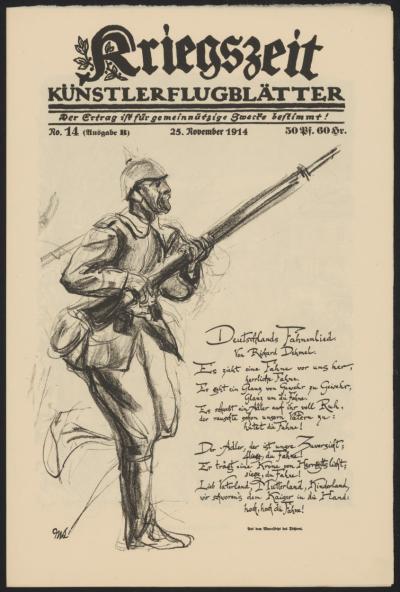 Kriegszeit
KÜNSTLERFLUGBLÄTTER
Der Ertrag ist für gemeinnützige Zwecke bestimmt!
No. 14 (Ausgabe B) 25. November 1914 50 Pf. 60 Hr.
Deutschlands Fahnenlied
Von Richard Dehmel.
Es zieht eine Fahne vor uns her,
herrliche Fahne.
Es geht ein Glanz von Gewehr zu Gewehr,
Glanz um die Fahne.
Es schwebt ein Adler auf ihr voll Ruh,
der rauschte schon unsern Vätern zu:
hütet die Fahne!
Der Adler, der ist unsre Zuversicht;
fliege, du Fahne!
Er trägt eine Krone von Herrgottslicht;
siege, du Fahne!
Lieb Vaterland, Mutterland, Kinderland,
wir schworens dem Kaiser in die Hand:
hoch, hoch die Fahne!
Aus dem Manuskript des Dichters.